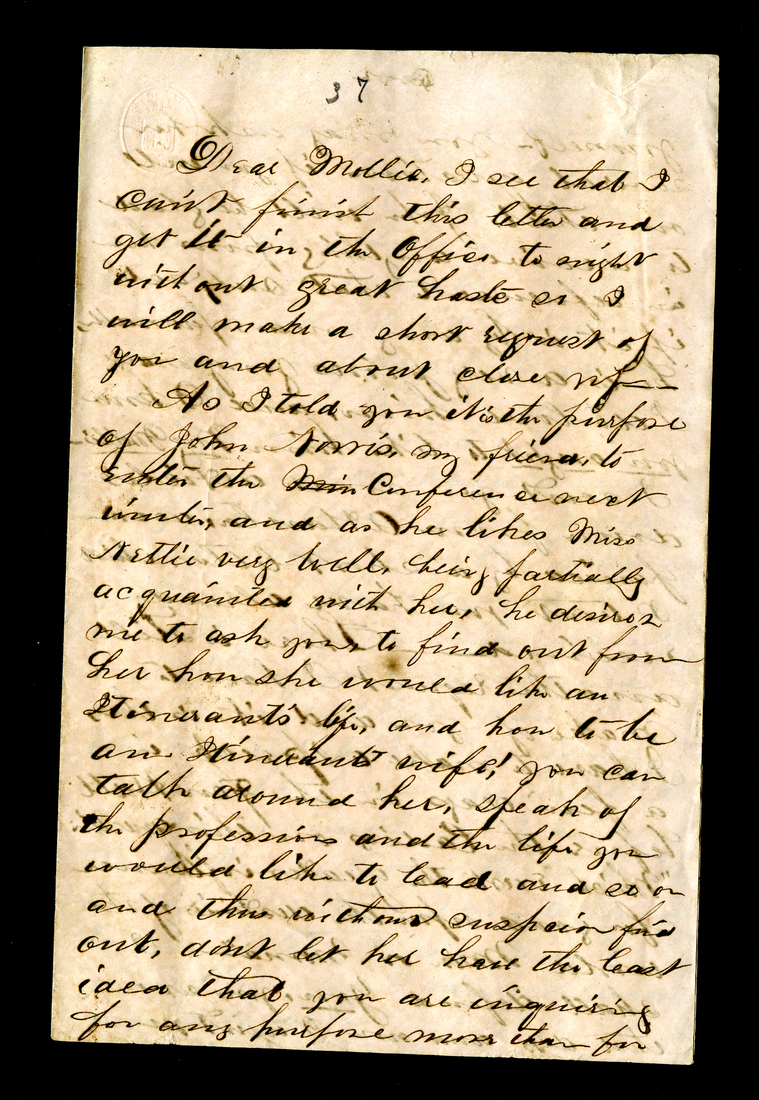 37
Dear Mollie, I see that I
can't finish this letter and
get it in the Office to night
without great haste so I
will make a short request of
you and about close up
As I told you it is the purpose
of John Norris, my friend, to
enter the Min Conference next
winter, and as he likes Miss
Nettie very well, being partially
acquainted with her, he desires
me to ask you, to find out from
her how she would like an
Itinerant's life, and how to be
an Itinerant's wife! you can
talk around her, speak of
the profession and the life you
would like to lead and so on
and thus without suspicion find
out, don't let her have the least
idea that you are inquiring
for any purpose more than for